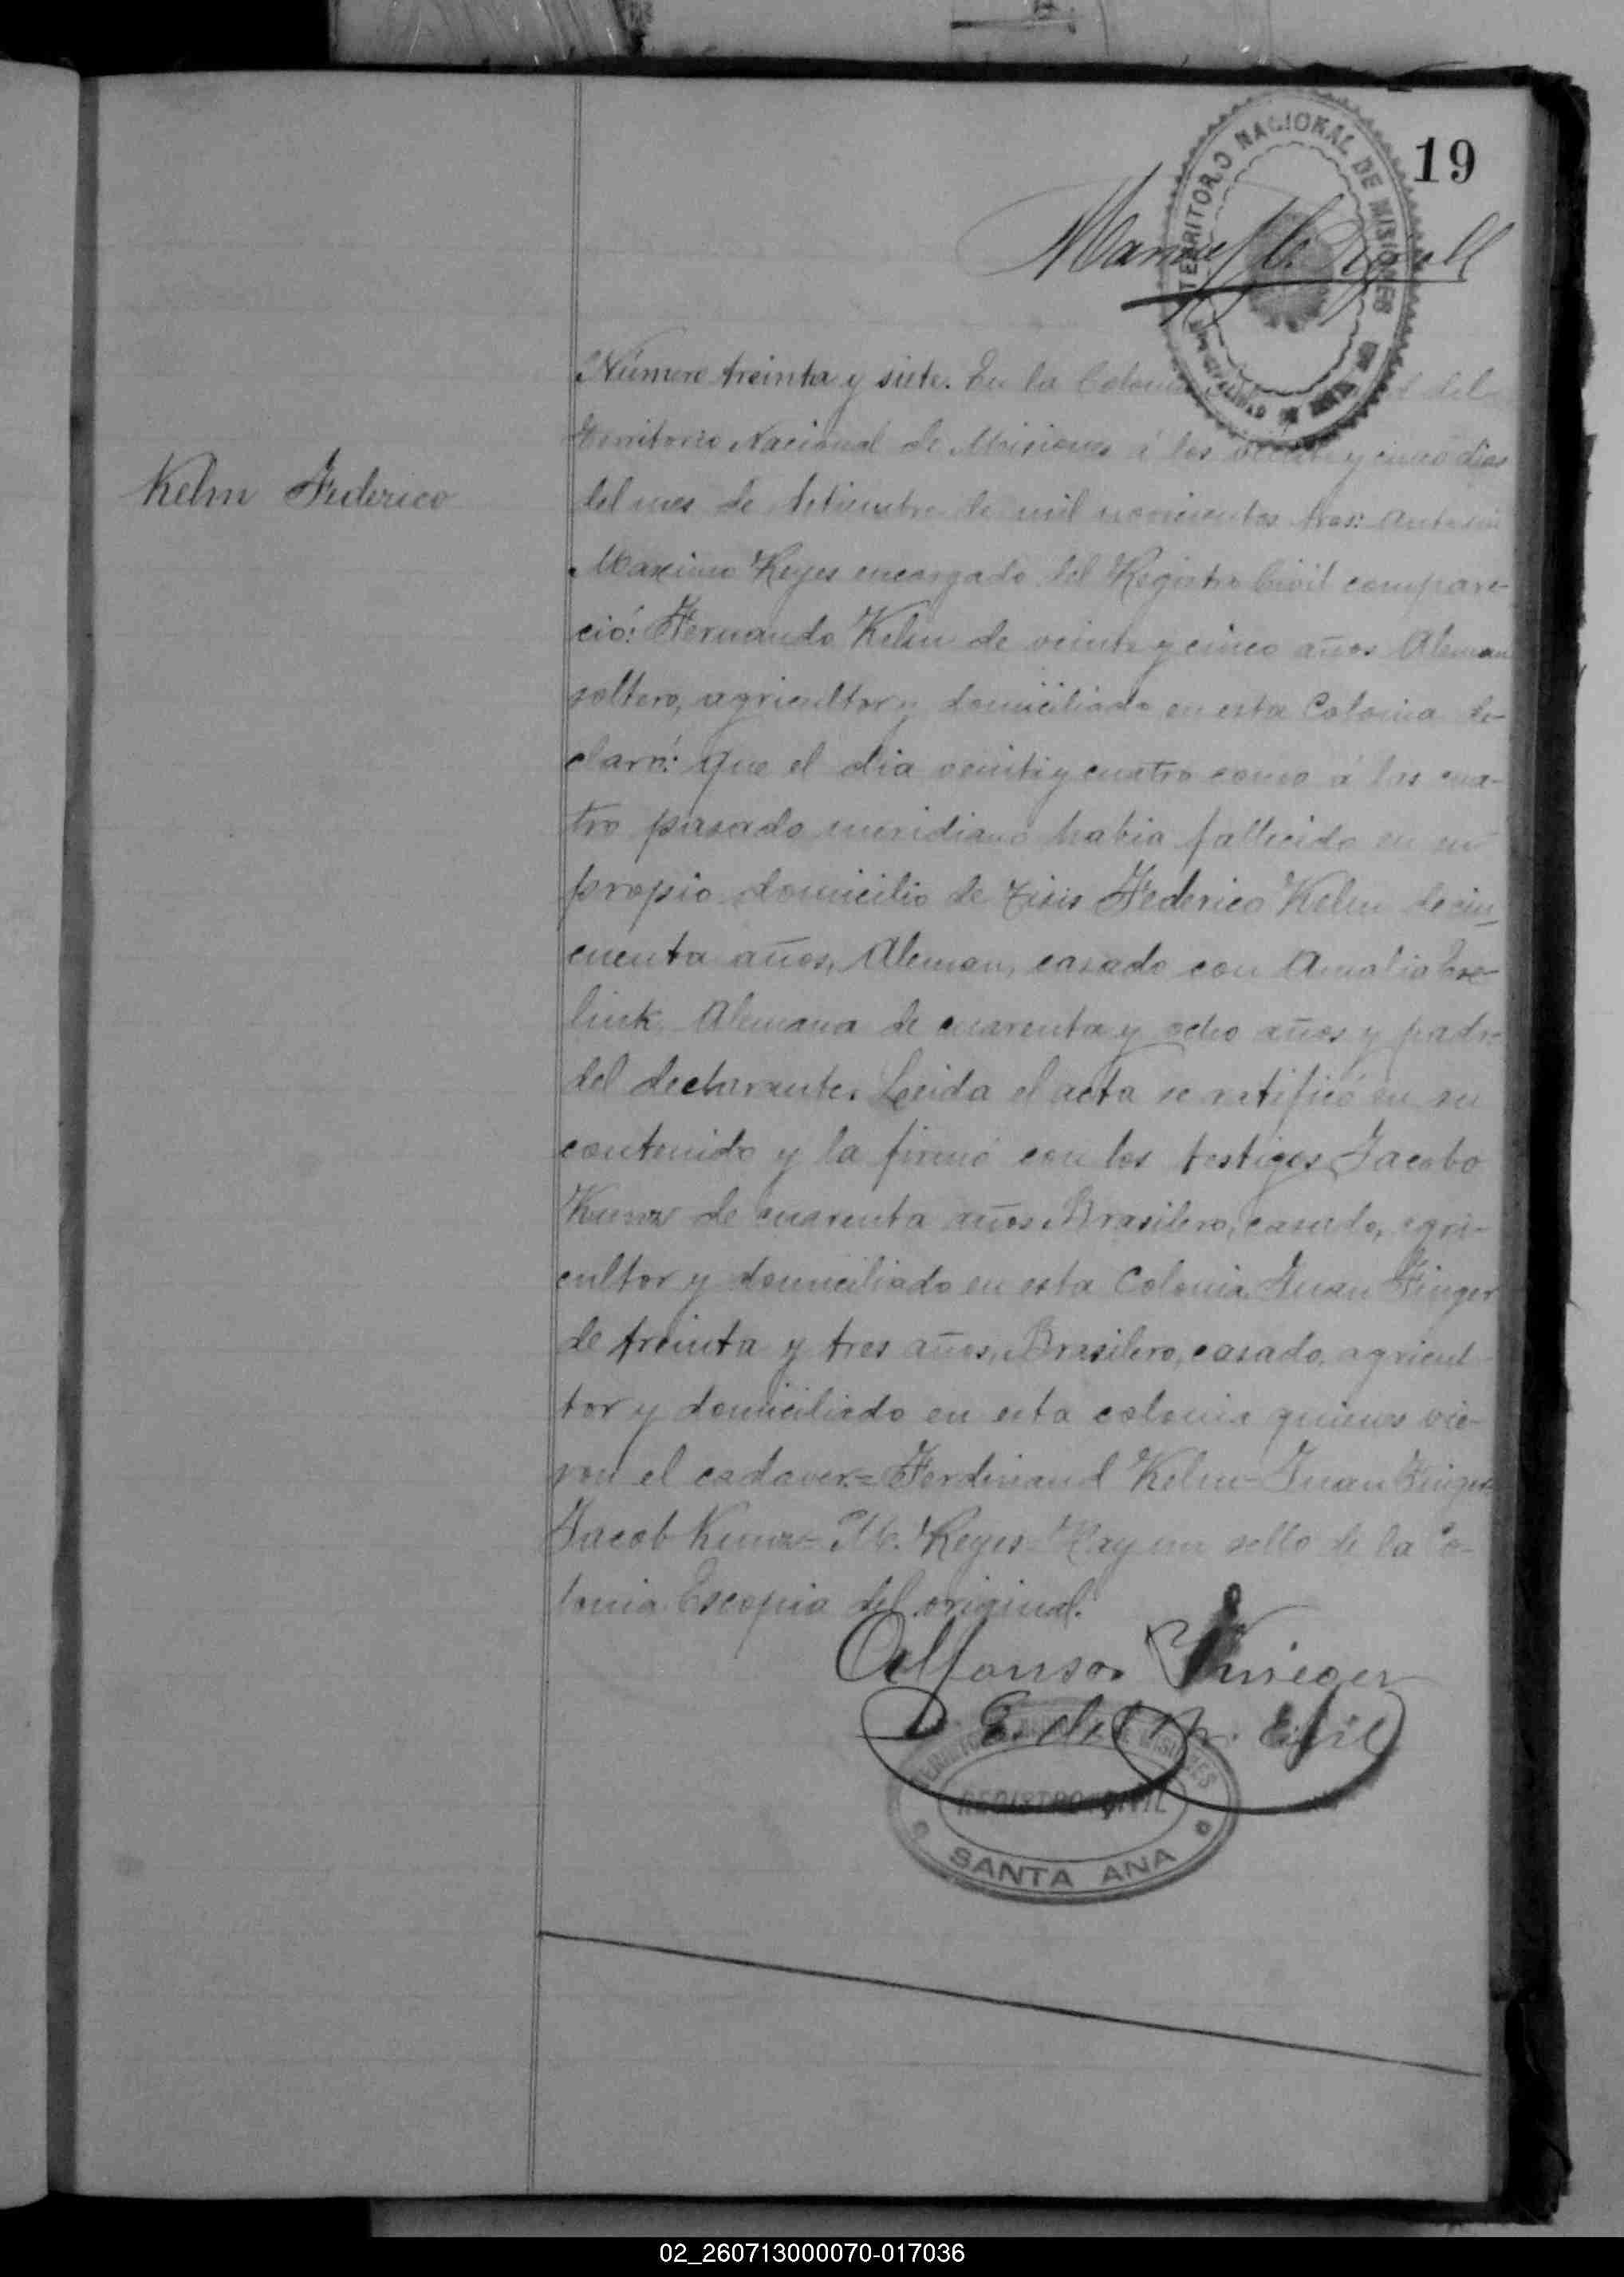 19
TERRITORIO NACIONAL DE MISIONES
Manuel
Kelm Federico
Número treinta y siete. En la Colonia del
territorio Nacional de Misiones á los veinte y cinco dias
del mes de Setiembre de mil novecientos tres: ante mi
Maximo Reyes encargado del Registro Civil compare-
ció: Fernando Kelm de veinte y cinco años Aleman
soltero, agricultor y domiciliado en esta Colonia de-
claró: que el dia veinti y cuatro como á las cua-
tro pasado meridiano habia fallecido en su
propio domicilio de Tisis Federico Kelm de cin-
cuenta años, Aleman, casado con Amalia
link Alemana de cuarenta y ocho años y padre
del declarante. Leida el acta se ratificó en su
contenido y la firmó con los testigos Jacobo
Kunz de cuarenta años Brasilero, casado, agri-
cultor y domiciliado en esta Colonia Juan Finger
de treinta y tres años, Brasilero, casado, agricul-
tor y domiciliado en esta colonia quienes vie-
ron el cadaver.= Ferdinand Kelm= Juan Finger
Jacob Kunz= M. Reyes= Hay un sello de la Co-
lonia Es copia del original.
Alfonso Krieger
E. del R. Civil
REGISTRO CIVIL
SANTA ANA
02_260713000070-017036